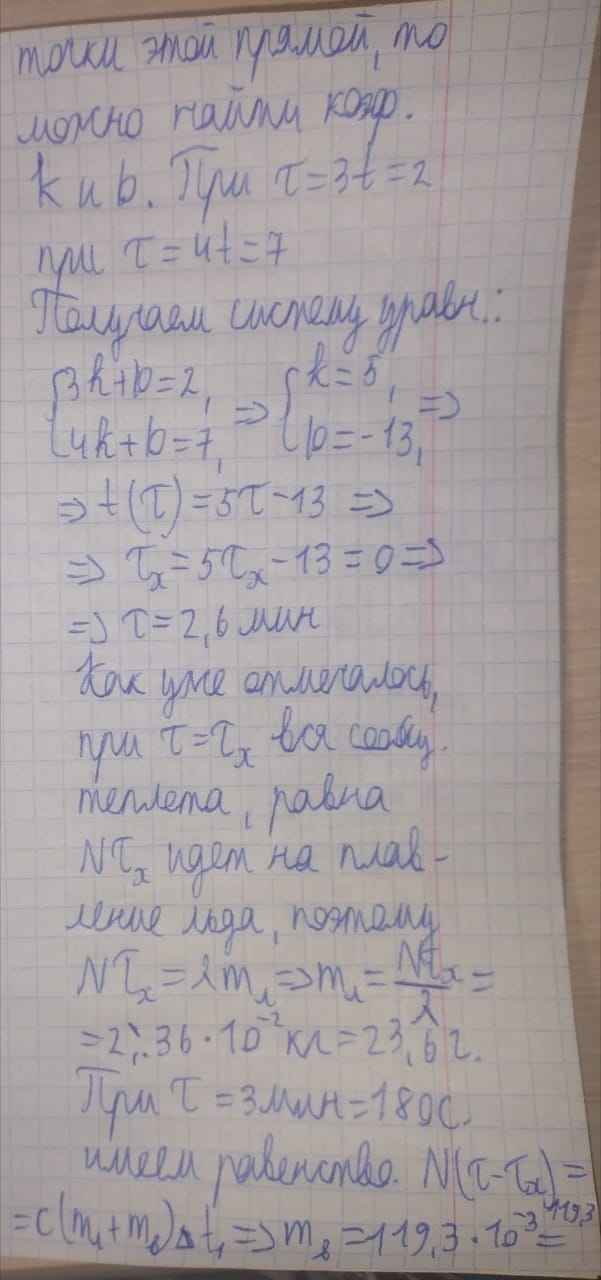 точки этой прямой, то
можно найти коэф.
k и b. При τ=3t=2
при τ=4t=7
Получаем систему уравн.:
{3k+b=2, => {k=5, =>
{4k+b=7, {b=-13,
=> t(τ)=5τ-13 =>
=> τₓ=5τₓ-13=0=>
=> τ=2,6 мин
Как уже отмечалось,
при τ=τₓ вся сообщ.
теплета, равна
Nτₓ идет на плав-
ление льда, поэтому
Nτₓ=λmл=>mл=Nτₓ/λ=
=2,36·10⁻²кг=23,6г.
При τ=3мин=180с.
имеем равенство. N(τ-τₓ)=
=c(mл+mв)Δt₁=>mв=119,3·10⁻³=119,3